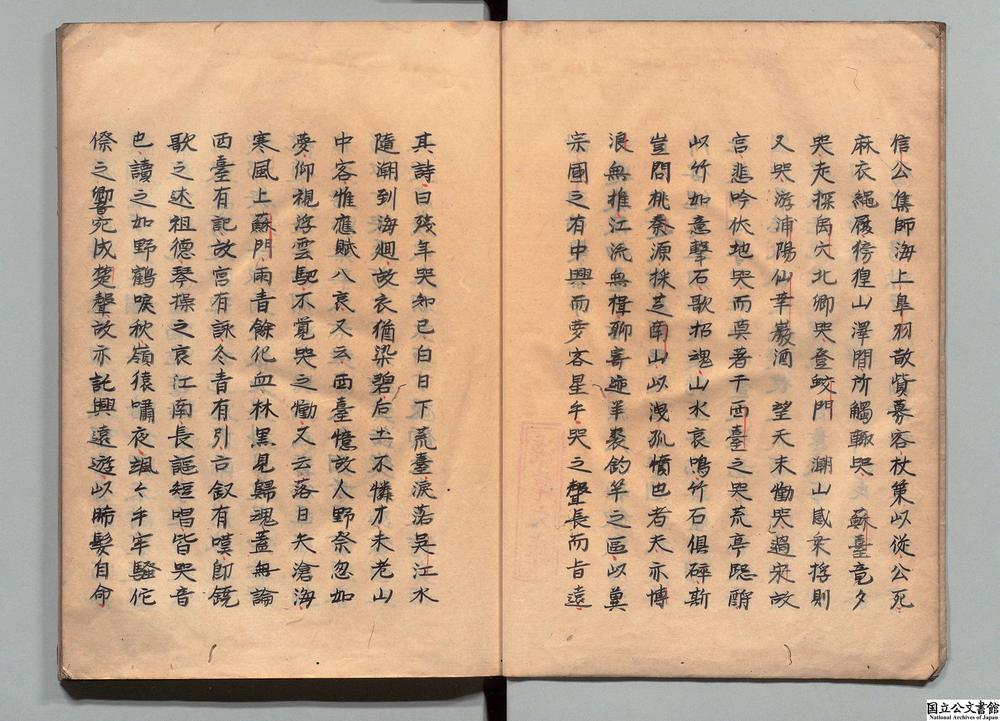 信公雋師海上皐羽散貲募客杖策以從公死
麻衣繩履徬徨山澤間所觸輙哭　蘇臺竟夕
哭走探禹穴北鄉哭登蛟門　潮山感乘桴則
又哭游浦陽仙華巖酒　望天末慟哭過宋故
宫悲吟伏地哭而莫著于西臺之哭荒亭隠酹
以竹如意擊石歌招魂山水哀鳴竹石俱碎斯
豈問桃秦源採芝南山以洩孤憤也者夫亦博
浪無推江流無楫聊寄迹羊裘釣竿之區以兾
宗國之有中興而夢客星乎哭之聲長而旨遠
其詩曰殘年哭知已白日下荒臺淚落吳江水
隨潮到海廻故衣猶染碧后土不憐才未老山
中客惟應賦八哀又云西臺憶故人野祭忽如
夢仰視浮雲馭不覚哭之慟又云落日失滄海
寒風上蘇門雨青餘化血林黑見歸魂蓋無論
西臺有記故宫有詠冬青有引古釵有嘆卽鐃
歌之述祖德琴操之哀江南長謳短唱皆哭音
也讀之如野鶴唳秋嶺猿嘯夜颯々乎牢騷侘
傺之響宛成楚聲故亦託興遠遊以晞髮自命
国立公文書館
National Archives of Japan